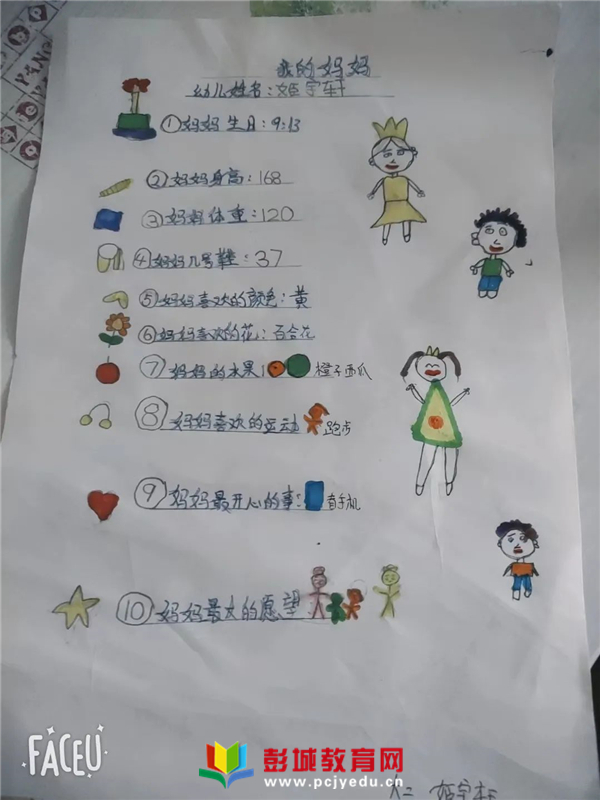 我的妈妈
幼儿姓名:姬宇轩
①妈妈生日:9:13
②妈妈身高:168
③妈妈体重:120
④妈妈几号鞋:37
⑤妈妈喜欢的颜色:黄
⑥妈妈喜欢的花:百合花
⑦妈妈的水果 橙子西瓜
⑧妈妈喜欢的运动 跑步
⑨妈妈最开心的事: 看手机
⑩妈妈最大的愿望
大二 姬宇轩
FACEU
彭城教育网
www.pcjyedu.cn